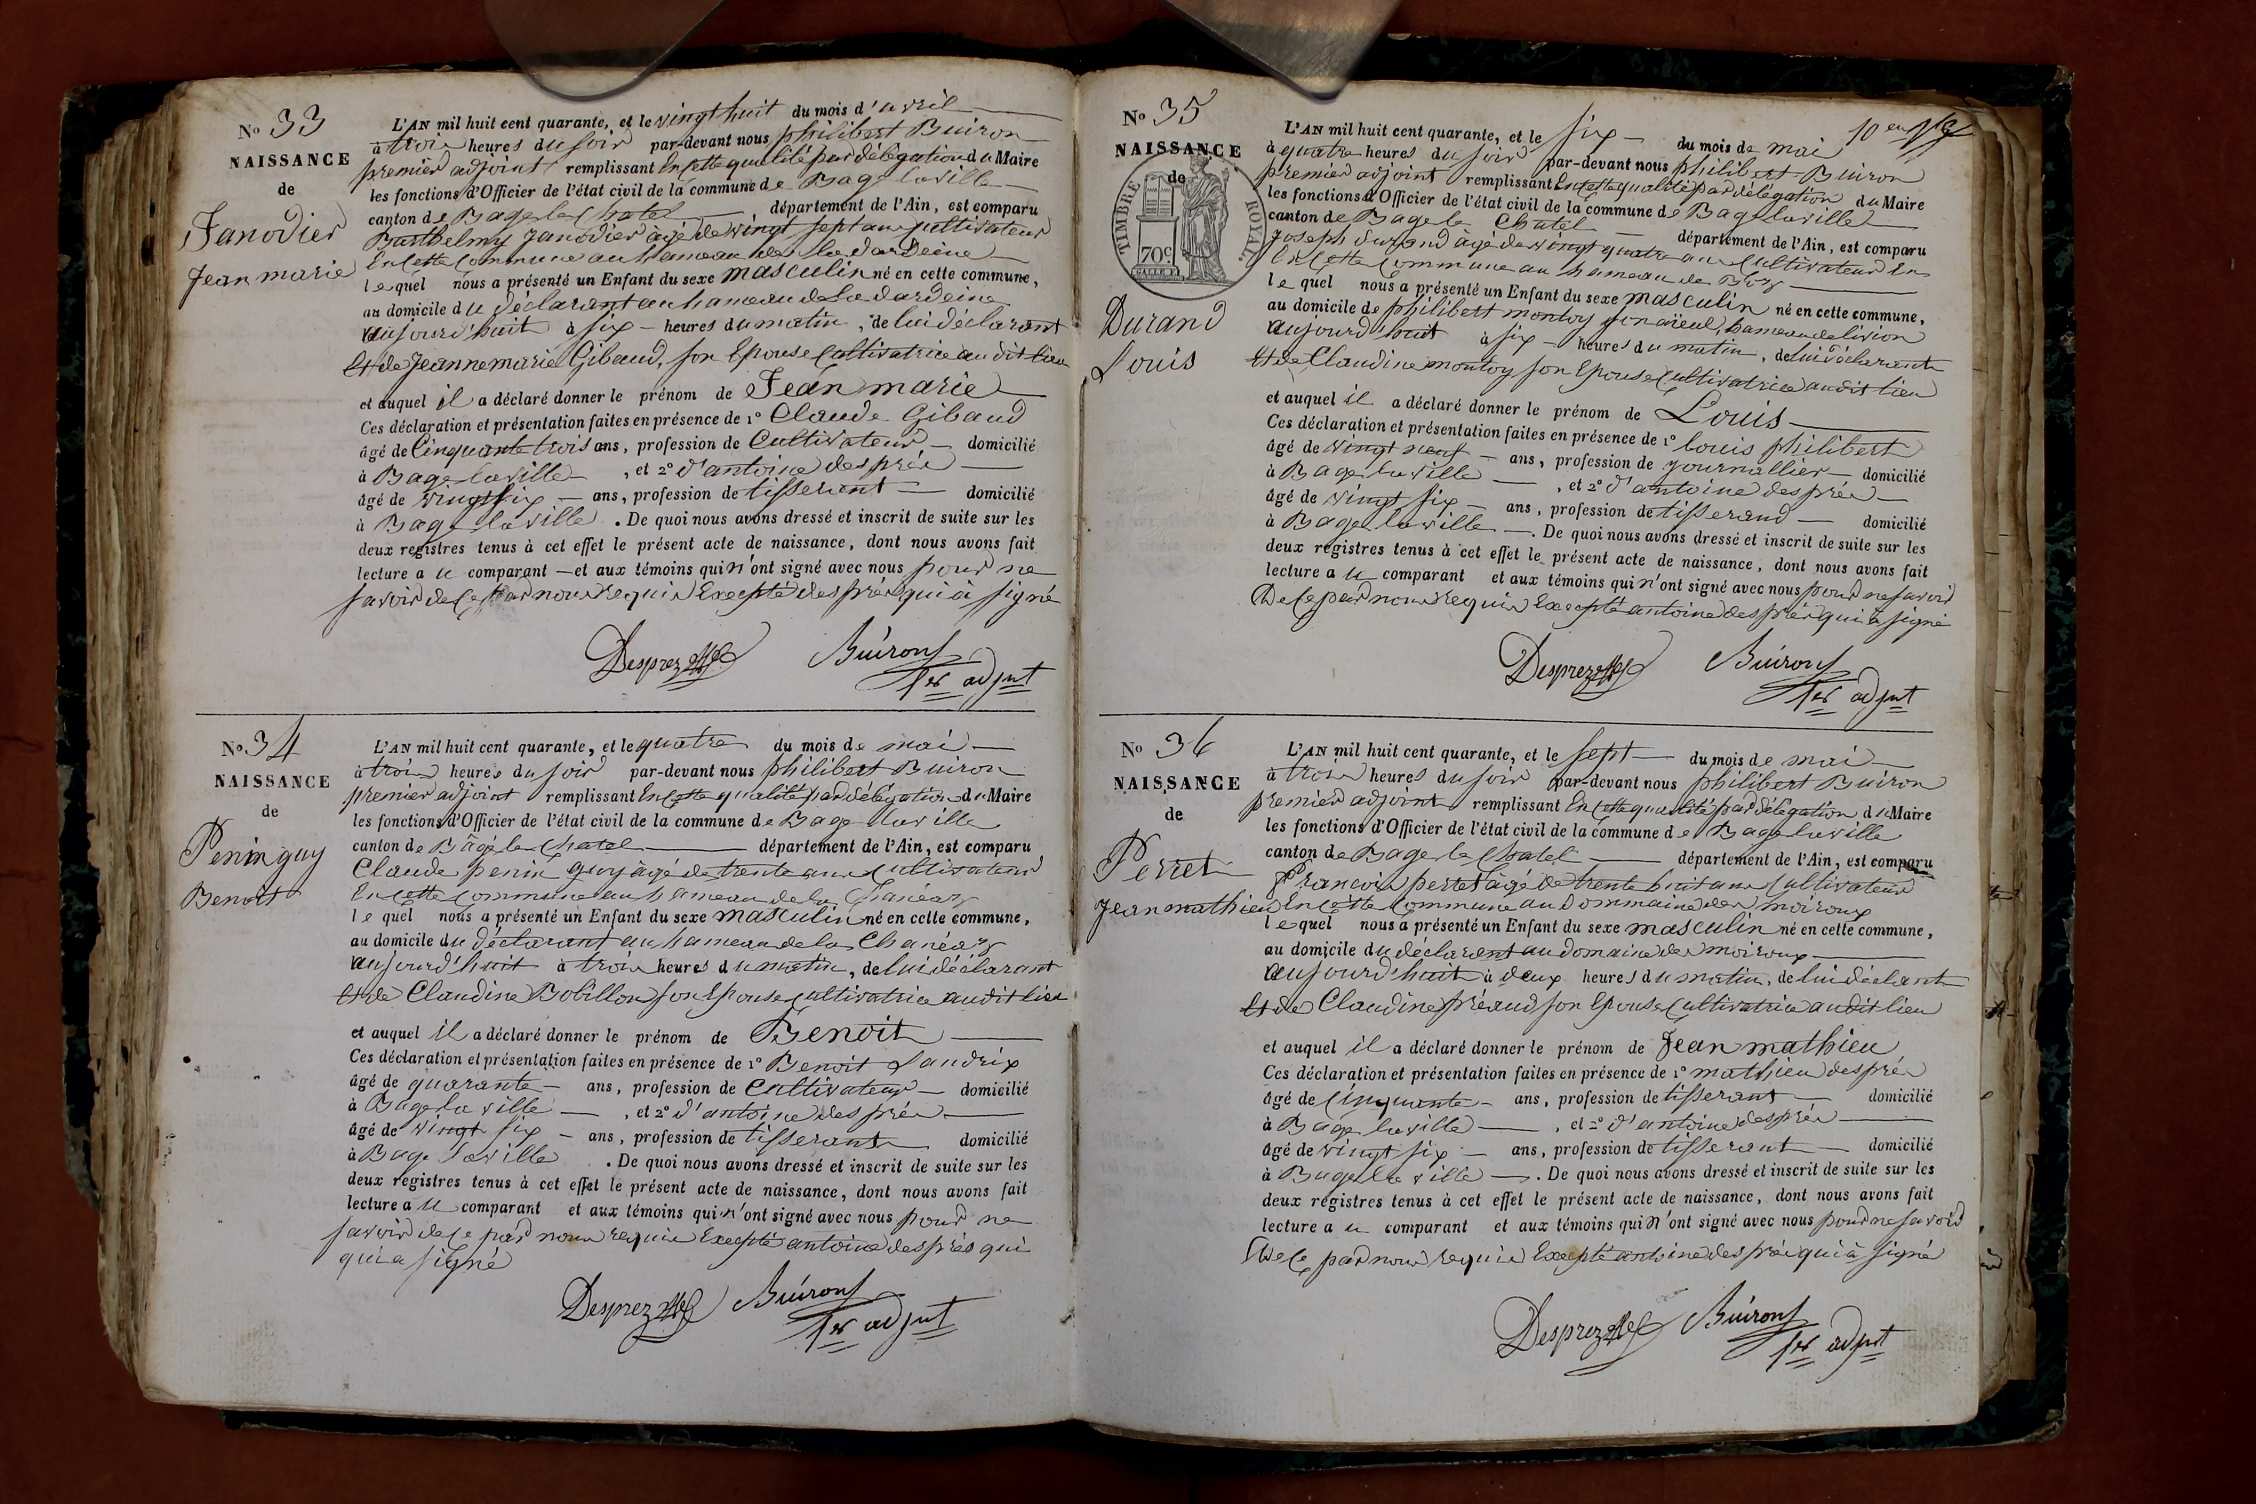 No 33
NAISSANCE
de
Janodier
Jean marie
L'AN mil huit cent quarante, et le vingt huit du mois d'avril
à trois heures du soir par-devant nous philibert Buiron
premier adjoint remplissant En cette qualité par délégation du Maire
les fonctions d'Officier de l'état civil de la commune de Bage laville
canton de Bage le Chatel département de l'Ain, est comparu
Barthelmy Janodier âgé de vingt sept ans cultivateur
En cette commune au hameau de la dardeine
lequel nous a présenté un Enfant du sexe masculin né en cette commune,
au domicile du déclarant au hameau de La dardeine
aujourd'huit à six heures du matin, de lui déclarant
Et de Jeanne marie Gibaud, son Epouse Cultivatrice au dit lieu
et auquel il a déclaré donner le prénom de Jean marie
Ces déclaration et présentation faites en présence de 1° Claude Gibaud
âgé de Cinquante trois ans, profession de Cultivateur domicilié
à Bage laville, et 2° d'antoine després
âgé de vingt six ans, profession de tisserant domicilié
à Bage laville. De quoi nous avons dressé et inscrit de suite sur les
deux registres tenus à cet effet le présent acte de naissance, dont nous avons fait
lecture au comparant et aux témoins qui n'ont signé avec nous pour ne
savoir de ce par nous requis Excepté després qui à signé
Desprez
Buiron
1er adjnt
No 34
NAISSANCE
de
Penin guy
Benoit
L'AN mil huit cent quarante, et le quatre du mois de mai
à trois heures du soir par-devant nous philibert Buiron
premier adjoint remplissant En cette qualité par délégation du Maire
les fonctions d'Officier de l'état civil de la commune de Bage laville
canton de Bâgé le Chatel département de l'Ain, est comparu
Claude penin guy âgé de trente ans Cultivateur
En cette commune au hameau de la
lequel nous a présenté un Enfant du sexe masculin né en cette commune,
au domicile du déclarant au hameau de la
aujourd'huit à trois heures du matin, de lui déclarant
Et de Claudine Bobillon son Epouse cultivatrice au dit lieu
et auquel il a déclaré donner le prénom de Benoit
Ces déclaration et présentation faites en présence de 1° Benoit Landrix
âgé de quarante ans, profession de Cultivateur domicilié
à Bage la ville, et 2° d'antoine després
âgé de vingt six ans, profession de tisserant domicilié
à Bage laville. De quoi nous avons dressé et inscrit de suite sur les
deux registres tenus à cet effet le présent acte de naissance, dont nous avons fait
lecture au comparant et aux témoins qui n'ont signé avec nous pour ne
savoir de ce par nous requis Excepté antoine després qui
qui a signé
Desprez
Buiron
1er adjnt
No 35
NAISSANCE
de
TIMBRE ROYAL.
70c.
Durand
Louis
L'AN mil huit cent quarante, et le six du mois de mai
à quatre heures du soir par-devant nous philibert Buiron
premier adjoint remplissant En cette qualité par délégation du Maire
les fonctions d'Officier de l'état civil de la commune de Bage laville
canton de Bage le Chatel département de l'Ain, est comparu
Joseph durand âgé de vingt quatre ans Cultivateur En
En cette commune au hameau de
lequel nous a présenté un Enfant du sexe masculin né en cette commune,
au domicile de philibert montoy son aïeul, hameau de
aujourd'huit à six heures du matin, de lui déclarant
Et de Claudine montoy son Epouse Cultivatrice au dit lieu
et auquel il a déclaré donner le prénom de Louis
Ces déclaration et présentation faites en présence de 1° louis philibert
âgé de vingt neuf ans, profession de journallier domicilié
à Bage laville, et 2° d'antoine després
âgé de vingt six ans, profession de tisserand domicilié
à Bage laville. De quoi nous avons dressé et inscrit de suite sur les
deux registres tenus à cet effet le présent acte de naissance, dont nous avons fait
lecture au comparant et aux témoins qui n'ont signé avec nous pour ne savoir
De ce par nous requis Excepté antoine després qui à signé
Desprez
Buiron
1er adjnt
No 36
NAISSANCE
de
Perret
Jean mathieu
L'AN mil huit cent quarante, et le sept du mois de mai
à trois heures du soir par-devant nous philibert Buiron
premier adjoint remplissant En cette qualité par délégation du Maire
les fonctions d'Officier de l'état civil de la commune de Bage laville
canton de Bage le Chatel département de l'Ain, est comparu
François perret âgé de trente huit ans Cultivateur
En cette Commune au Dommaine des moiroux
lequel nous a présenté un Enfant du sexe masculin né en cette commune,
au domicile du déclarent au domaine des moiroux
aujourd'huit à deux heures du matin, de lui déclant
Et de Claudine préaud son Epouse Cultivatrice au dit lieu
et auquel il a déclaré donner le prénom de Jean mathieu
Ces déclaration et présentation faites en présence de 1° mathieu després
âgé de cinquante ans, profession de tisserant domicilié
à Bage laville, et 2° d'antoine després
âgé de vingt six ans, profession de tisserant domicilié
à Bage la ville. De quoi nous avons dressé et inscrit de suite sur les
deux registres tenus à cet effet le présent acte de naissance, dont nous avons fait
lecture au comparant et aux témoins qui n'ont signé avec nous pour ne savoir
De ce par nous requis Excepté antoine després qui à signé
Desprez
Buiron
1er adjnt